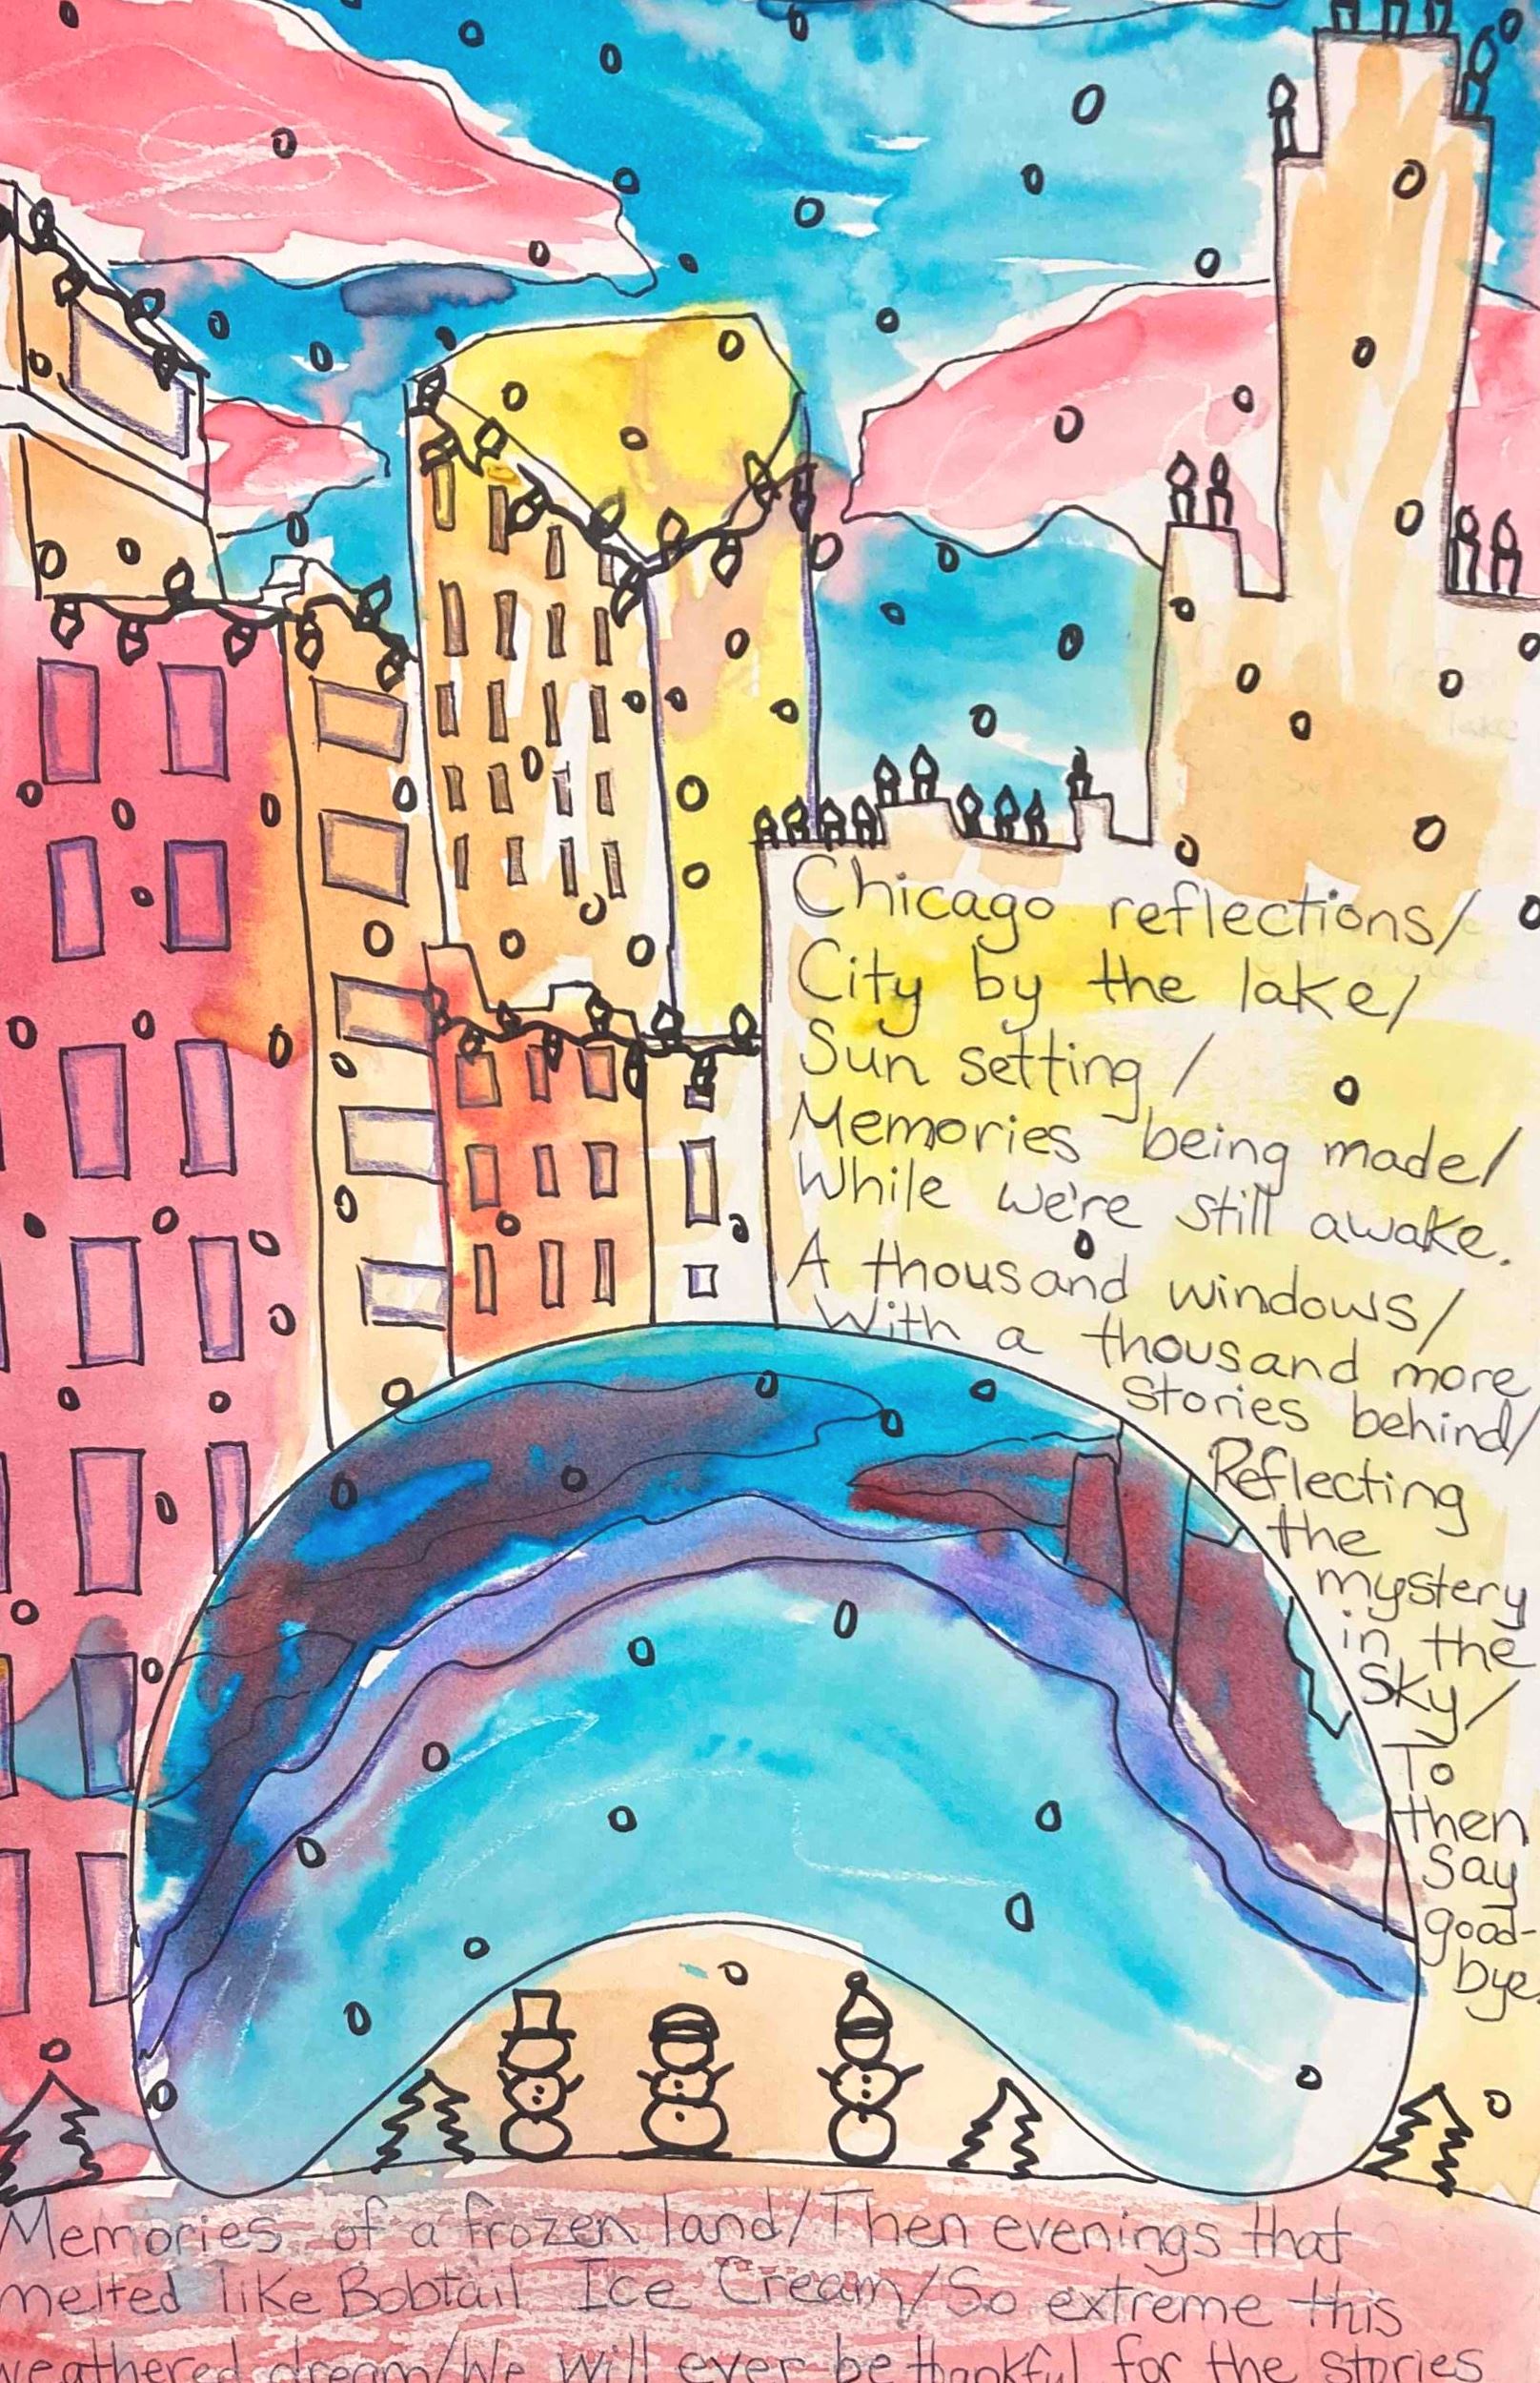 Chicago reflections/
City by the lake/
Sun setting /
Memories being made/
While we're still awake.
A thousand windows/
With a thousand more
stories behind/
Reflecting
the
mystery
in the
sky/
To
then
say
good-
bye.
Memories of a frozen land/Then evenings that
melted like Bobtail Ice Cream/So extreme this
weathered dream/We will ever be thankful for the stories